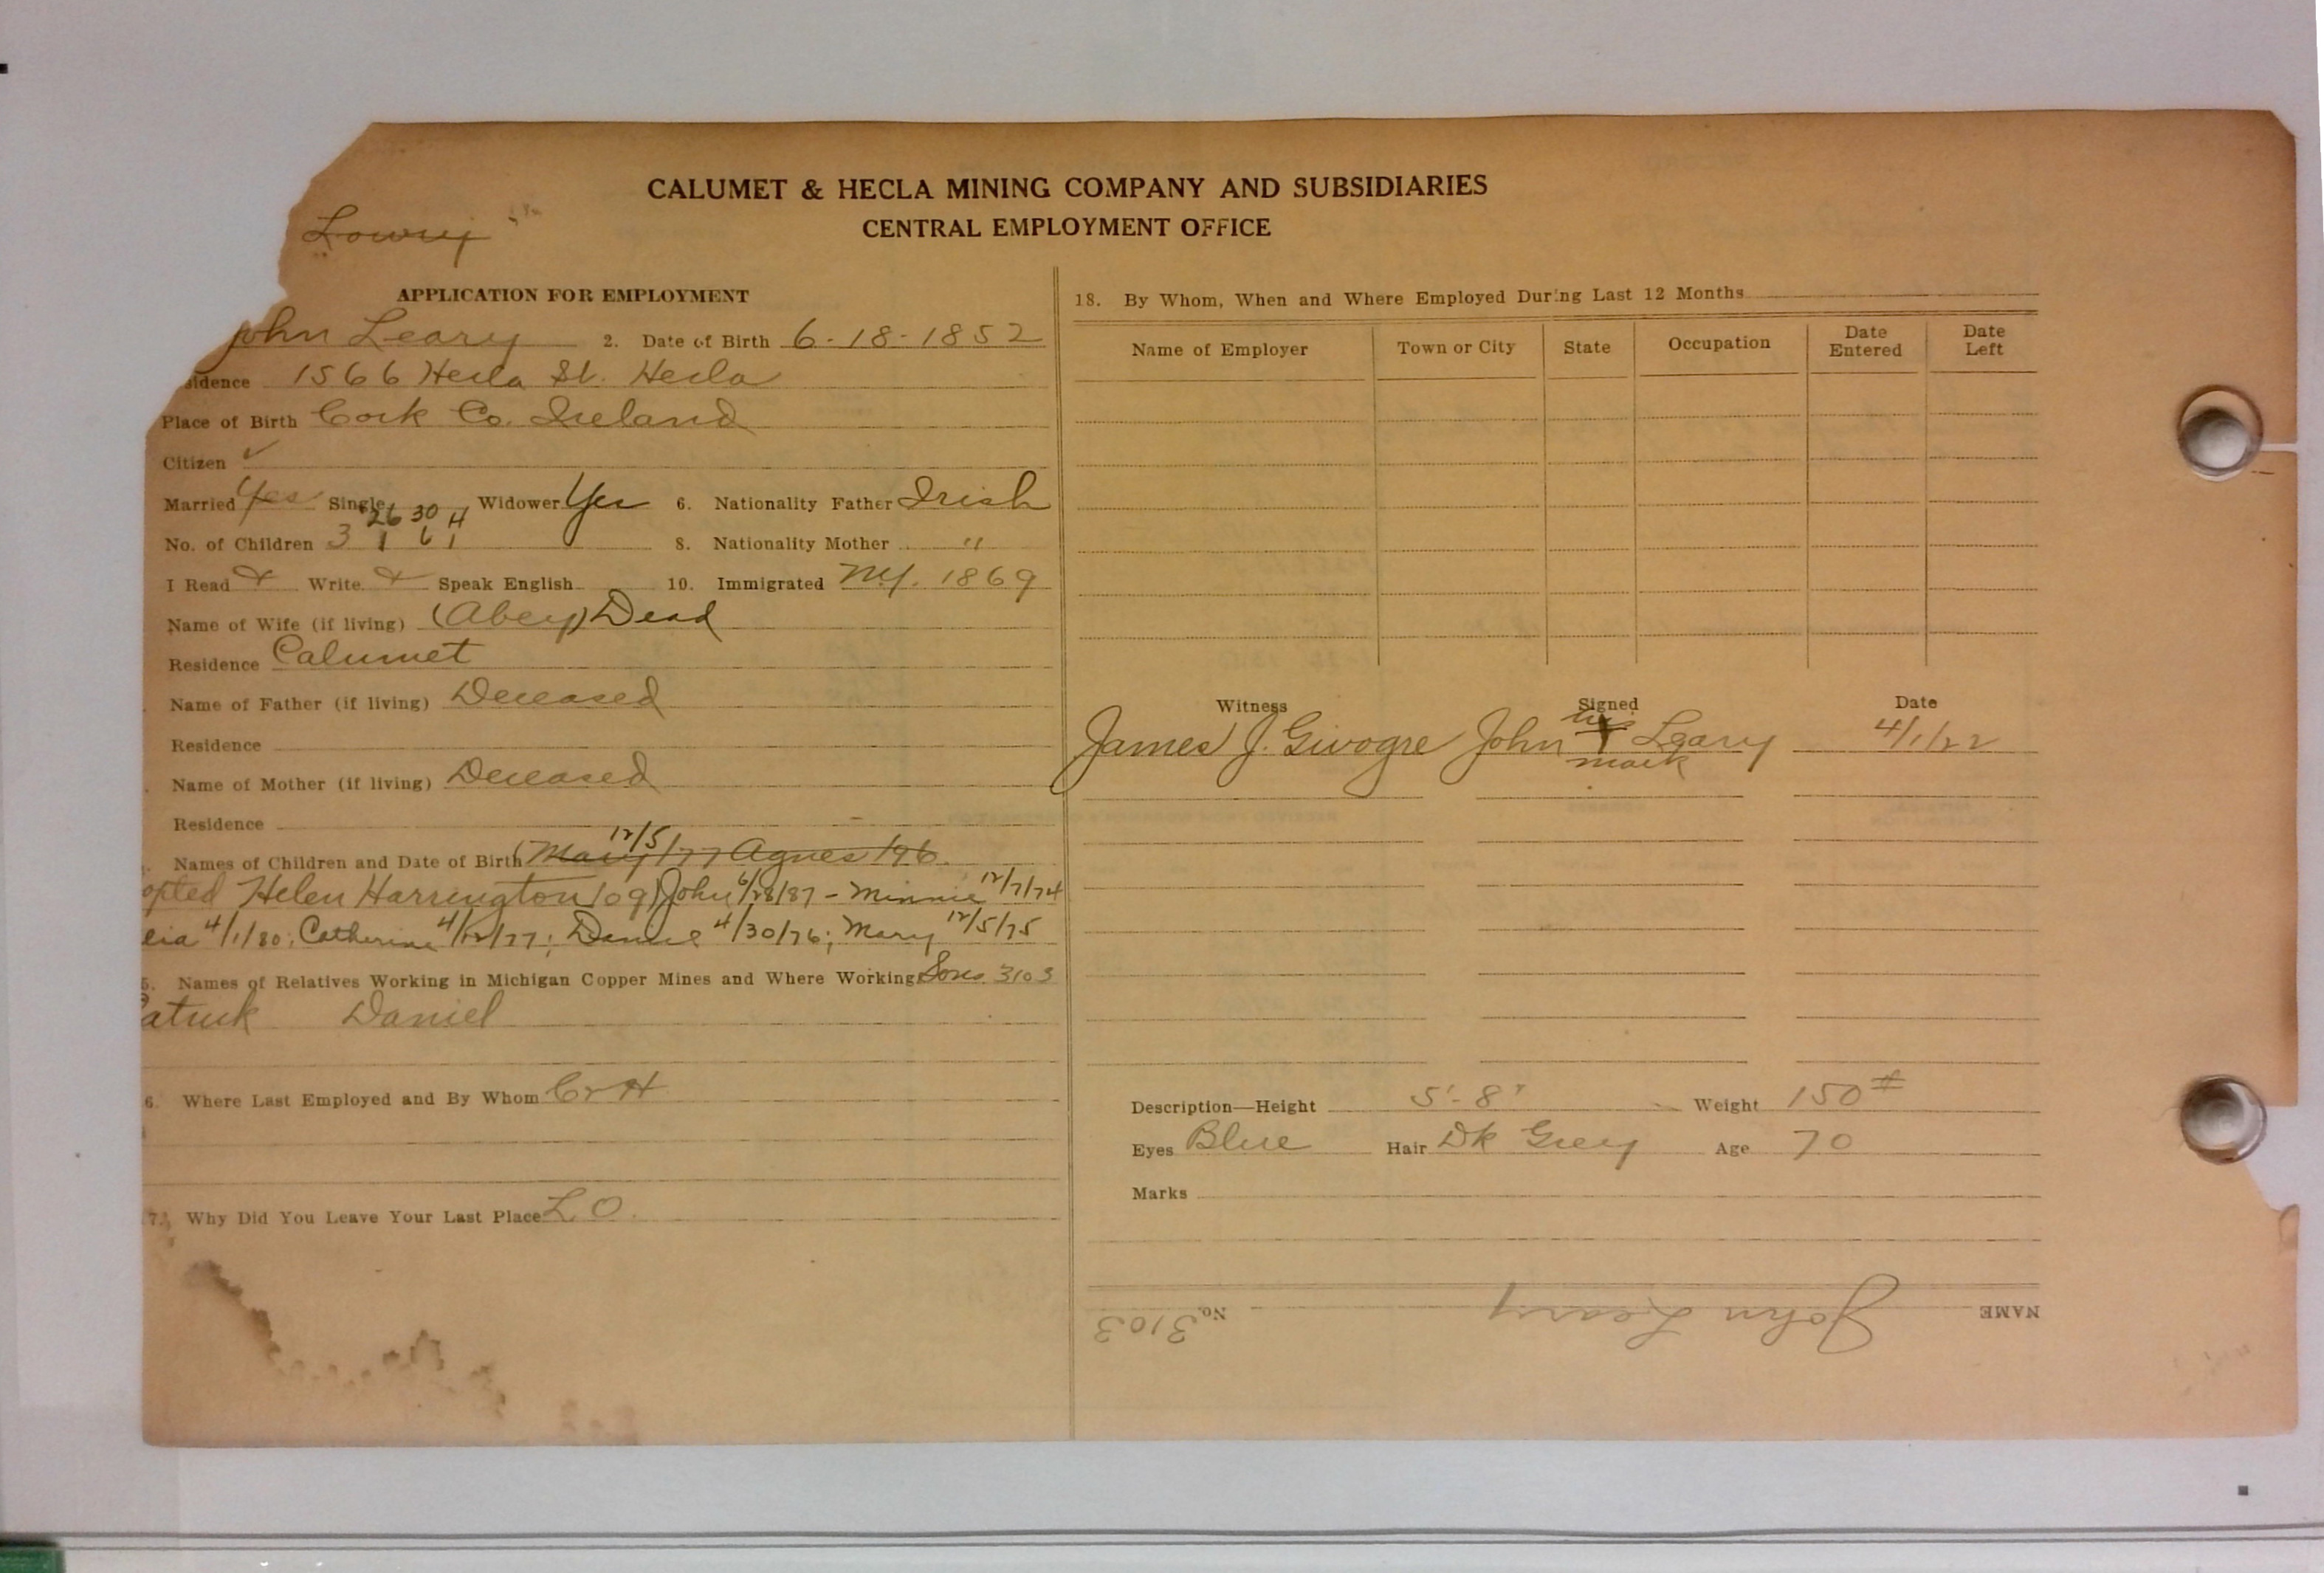 CALUMET & HECLA MINING COMPANY AND SUBSIDIARIES
CENTRAL EMPLOYMENT OFFICE
Lowry
APPLICATION FOR EMPLOYMENT
John Leary 2. Date of Birth 6-18-1852
sidence 1566 Hecla St. Hecla
Place of Birth Cork Co. Ireland
Citizen ✓
Married Yes Single Widower Yes 6. Nationality Father Irish
26 30 H
No. of Children 3 1 6 1 8. Nationality Mother "
I Read Write Speak English 10. Immigrated NY. 1869
Name of Wife (if living) (Abey) Dead
Residence Calumet
Name of Father (if living) Deceased
Residence
Name of Mother (if living) Deceased
Residence
12/5
Names of Children and Date of Birth (Mary /77 Agnes /96
opted Helen Harrington /09) John 6/28/87 - Minnie 12/7/74
lia 4/1/80; Catherine 4/12/77; Daniel 4/30/76; Mary 12/5/75
5. Names of Relatives Working in Michigan Copper Mines and Where Working Sons 3103
Patrick Daniel
6. Where Last Employed and By Whom C & H
7. Why Did You Leave Your Last Place L.O.
18. By Whom, When and Where Employed During Last 12 Months
Name of Employer Town or City State Occupation Date Entered Date Left
Witness Signed Date
James J. Givogre John his X mark Leary 4/1/22
Description—Height 5'-8" Weight 150#
Eyes Blue Hair Dk Grey Age 70
Marks
NAME John Leary No. 3103